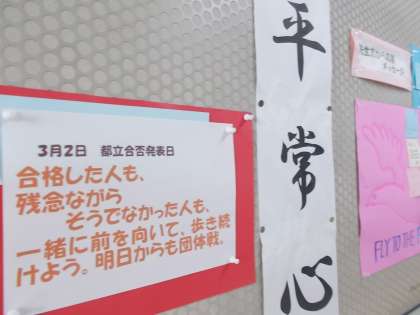 3月2日 都立合否発表日
合格した人も、
残念ながら
そうでなかった人も、
一緒に前を向いて、歩き続
けよう。明日からも団体戦。
平常心
メッセージ
FLY TO THE